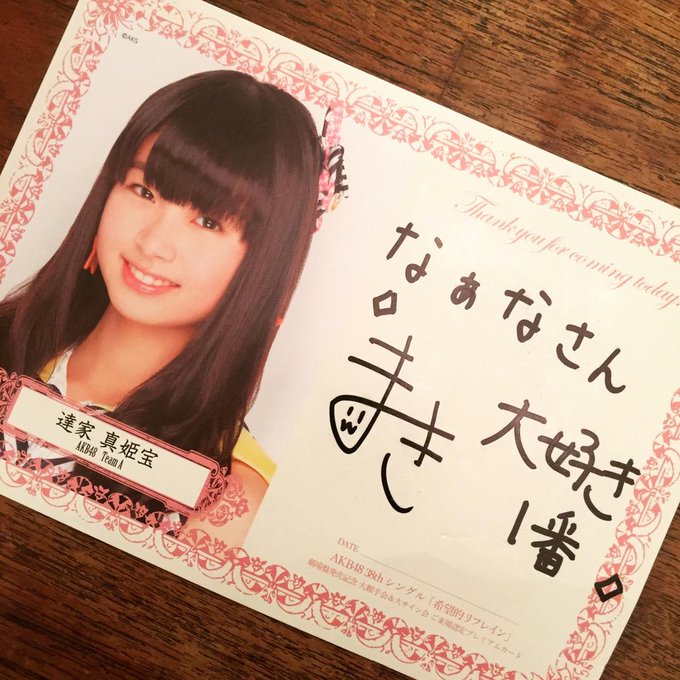 ©AKS
Thank you for coming today!
なぁなさん
まきし
大好き
1番。
達家 真姫宝
AKB48 Team A
DATE
AKB48 38th シングル「希望的リフレイン」
劇場盤発売記念 大握手会&大サイン会 ご来場認定プレミアムカード